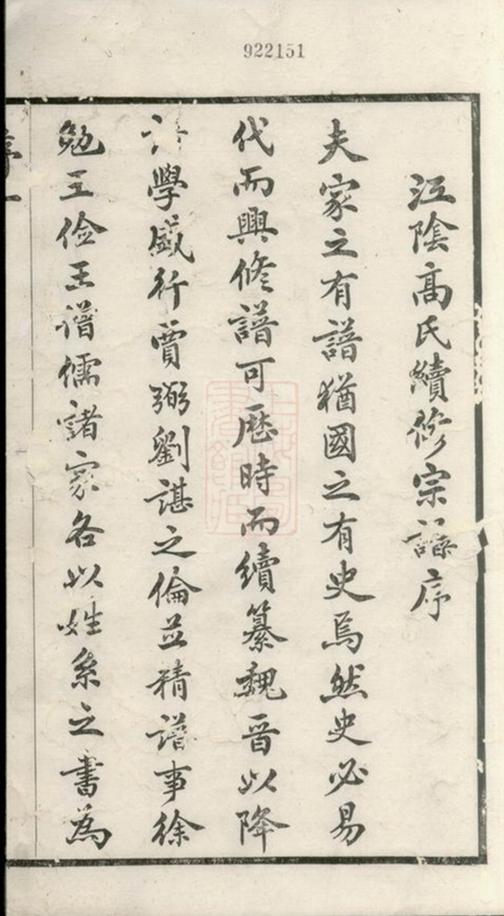 922151
江陰高氏續修宗譜序
夫家之有譜猶國之有史焉然史必易
代而興修譜可歷時而續纂魏晉以降
譜學盛行賈弼劉諶之倫並精譜事徐
勉王儉王僧儒諸家各以姓系之書為
序一